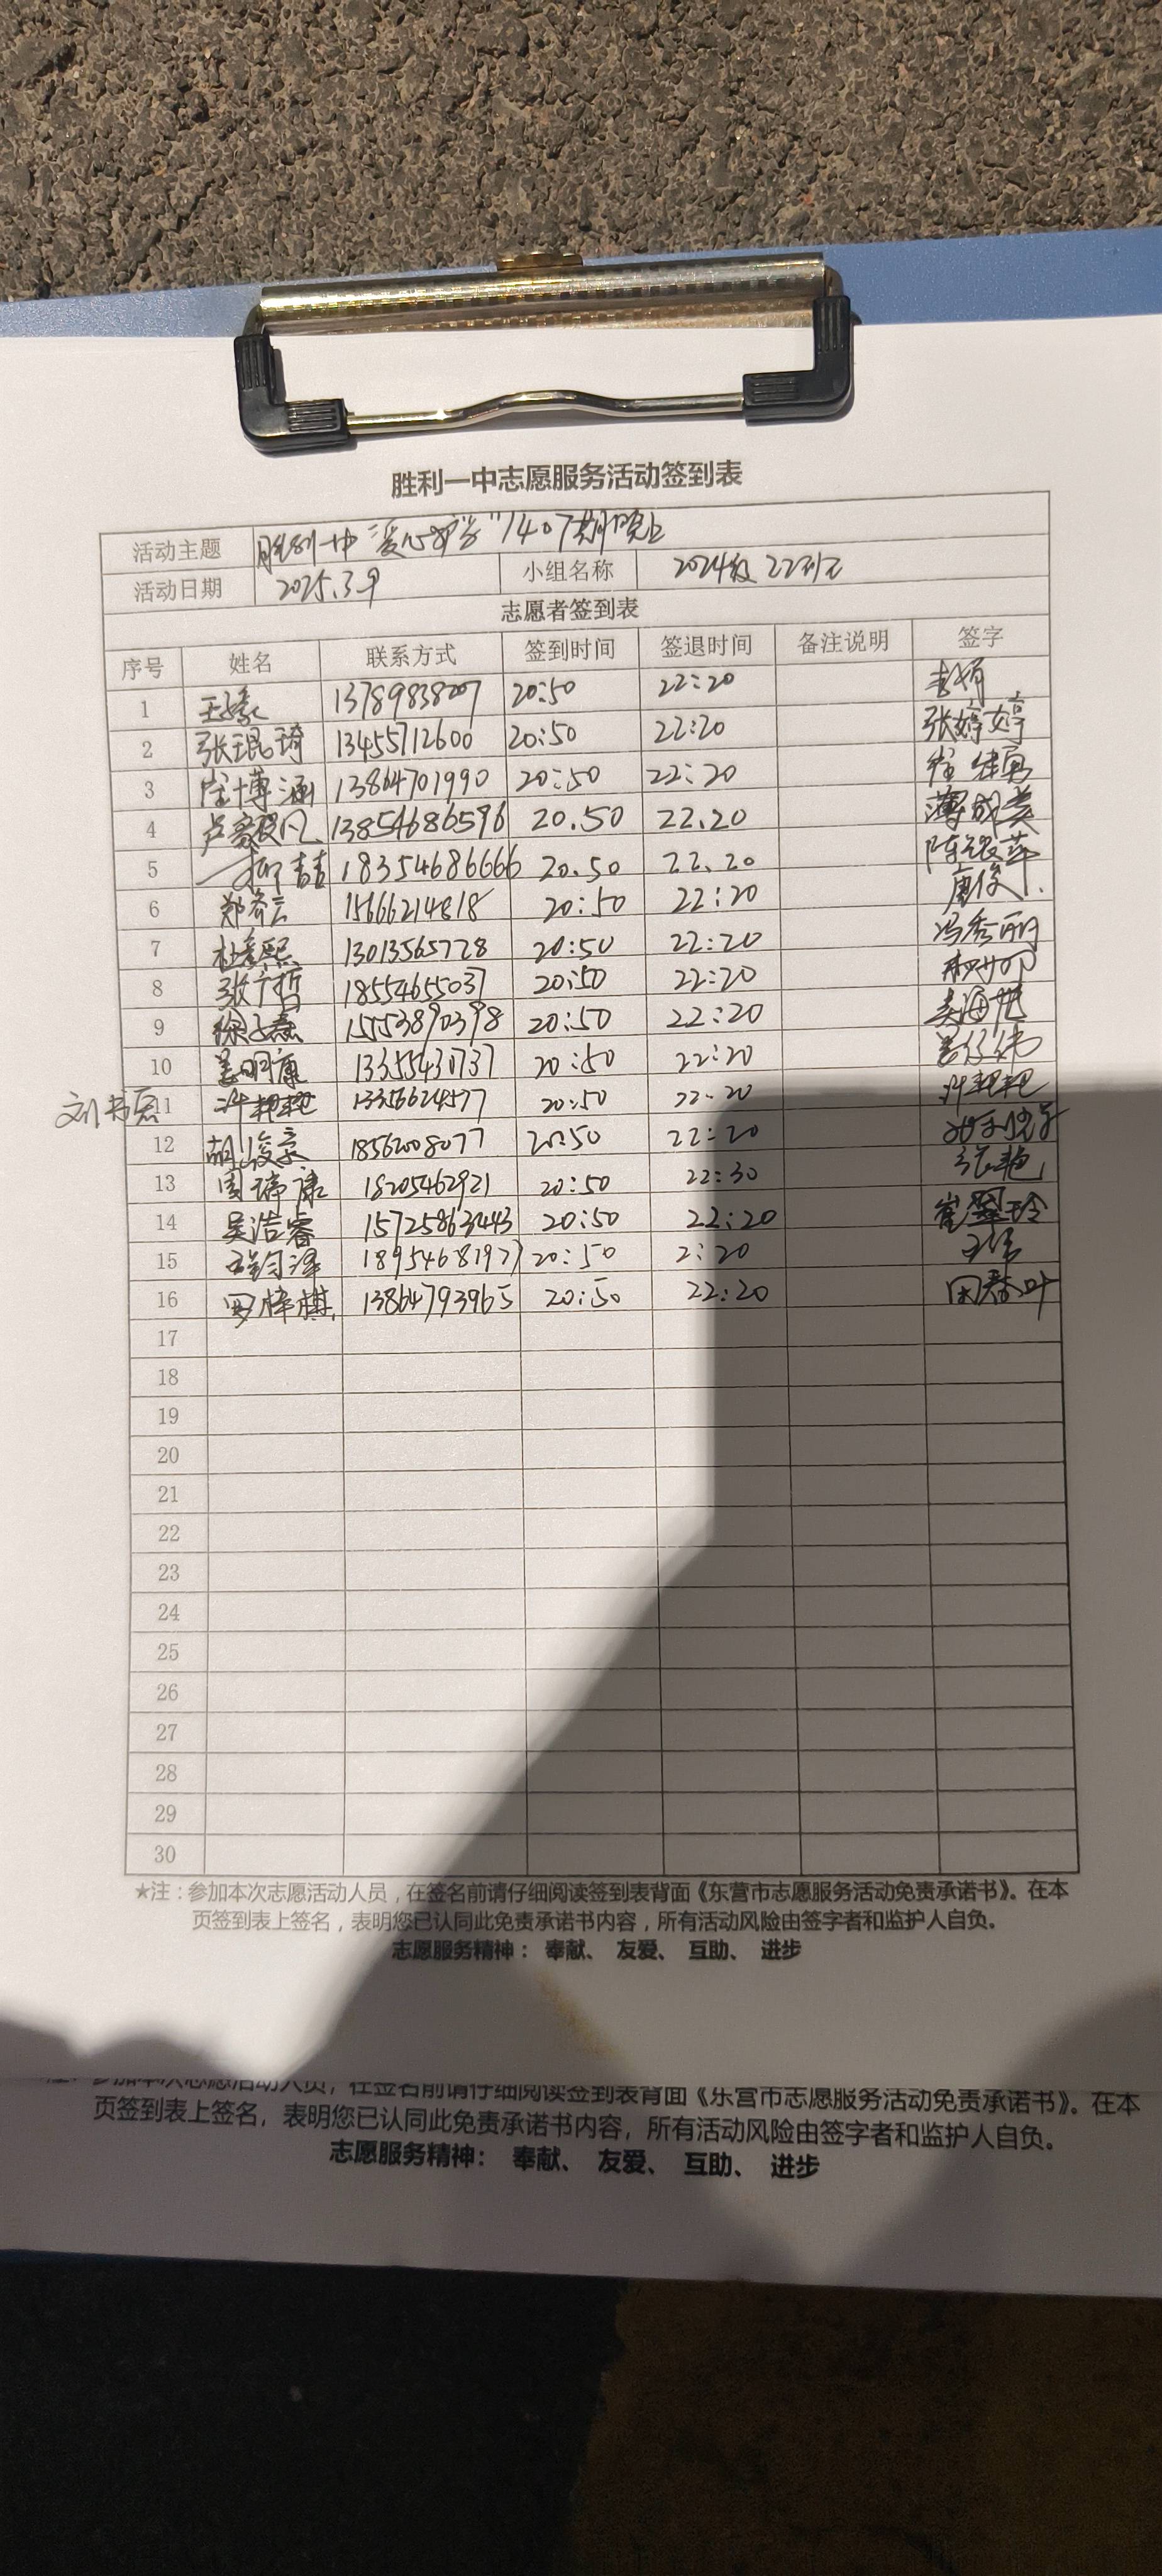 胜利一中志愿服务活动签到表
活动主题 胜利一中"爱心护学"1407期晚上
活动日期 2025.3.9 小组名称 2024级22班
志愿者签到表
序号 姓名 联系方式 签到时间 签退时间 备注说明 签字
1 13789838207 20:50 22:20
2 张琨琦 13455712600 20:50 22:20 张婷婷
3 崔博涵 13864701990 20:50 22:20
4 13854686596 20.50 22.20
5 18354686666 20.50 22.20
6 15666214818 20:50 22:20 唐俊
7 13013565728 20:50 22:20 冯秀丽
8 张广哲 18554655037 20:50 22:20
9 15553890398 20:50 22:20
10 姜明康 13355430737 20:50 22:20
刘书
11 许艳艳 13356624577 20:50 22:20 许艳艳
12 胡俊豪 18562008077 20:50 22:20
13 周瑞康 18205462921 20:50 22:30 张艳
14 吴浩睿 15725863443 20:50 22:20 崔翠玲
15 18954681977 20:50 2:20 王倩
16 罗梓棋 13864793965 20:50 22:20 田春叶
17
18
19
20
21
22
23
24
25
26
27
28
29
30
★注：参加本次志愿活动人员，在签名前请仔细阅读签到表背面《东营市志愿服务活动免责承诺书》。在本
页签到表上签名，表明您已认同此免责承诺书内容，所有活动风险由签字者和监护人自负。
志愿服务精神： 奉献、 友爱、 互助、 进步
注：参加本次志愿活动人员，在签名前请仔细阅读签到表背面《东营市志愿服务活动免责承诺书》。在本
页签到表上签名，表明您已认同此免责承诺书内容，所有活动风险由签字者和监护人自负。
志愿服务精神： 奉献、 友爱、 互助、 进步